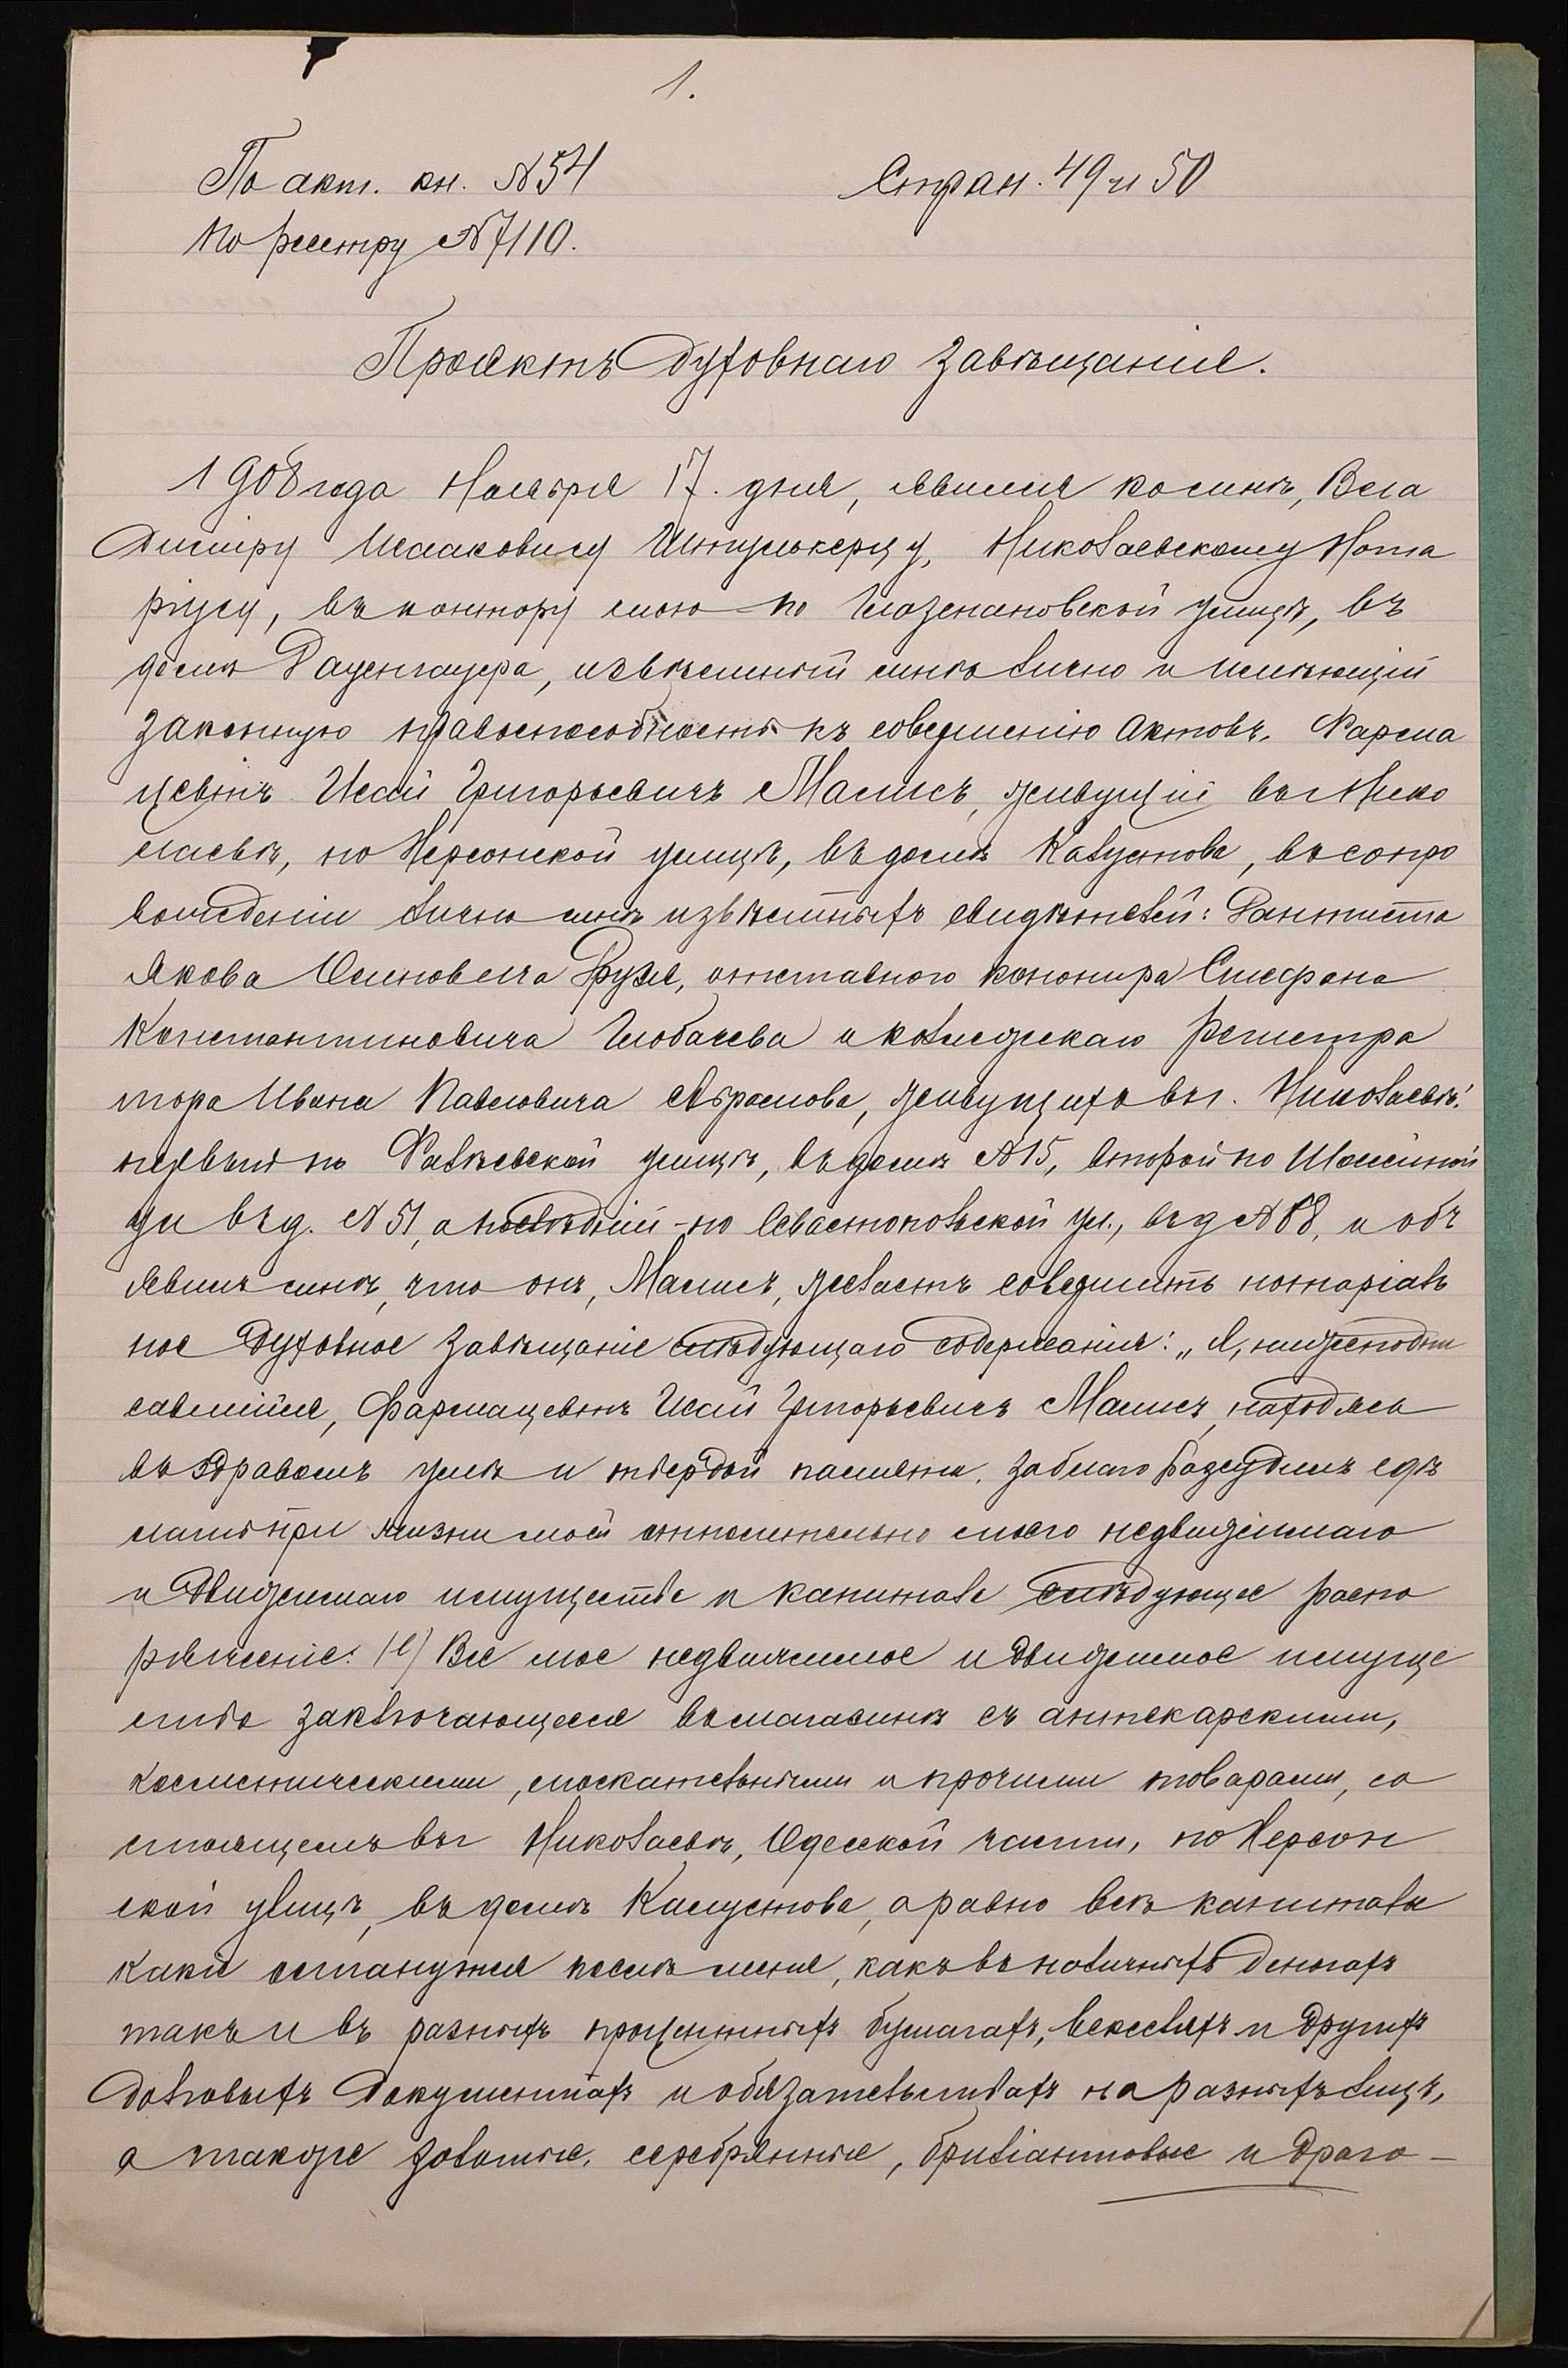 1.
По акт. кн. № 54 Стран. 49 и 50
По реестру № 7110.
Проектъ Духовнаго Завѣщанія.
1908 года Ноября 17. дня, явился ко мнѣ,
Исааковичу Николаевскому Нота
ріусу, въ контору мою по Глазенаповской улицѣ, въ
домѣ Даценгауера, извѣстный мнѣ лично и имѣющій
Законную правоспособность къ совершенію Актовъ, Фарма
цевтъ Исай Григорьевичъ Маликъ, живущій въ г Нико
лаевѣ, по Херсонской улицѣ, въ домѣ въ сопро
вожденіи лично мнѣ извѣстныхъ свидѣтелей: Дантиста
Якова Осиповича отставного канонира Стефана
Константиновича и коллежскаго Регистра
тора Ивана Павловича Абрамова, живущихъ въ г. Николаевѣ:
первый по Фалѣевской улицѣ, въ домѣ № 15, второй по
ул въ д. № 51, а послѣдній – по Севастопольской ул., въ д № 68, и объ
явилъ мнѣ, что онъ, Маликъ, желаетъ совершить нотаріаль
ное Духовное Завѣщаніе слѣдующаго содержанія: „Я, нижеподпи
савшійся, Фармацевтъ Исай Григорьевичъ Маликъ, находясь
въ здравомъ умѣ и твердой памяти, за благо разсудилъ сдѣ
лать при жизни моей относительно моего недвижимаго
и Движимаго имущества и капитала слѣдующее распо
ряженіе: Все мое недвижимое и Движимое имуще
ство заключающееся въ магазинѣ съ аптекарскими,
косметическими, москательными и прочими товарами, со
стоящемъ въ г Николаевѣ, Одесской части, по Херсон
ской улицѣ, въ домѣ а равно всѣ капиталы
какіе останутся послѣ меня, какъ въ наличныхъ Деньгахъ
такъ и въ разныхъ процентныхъ бумагахъ, векселяхъ и Другихъ
Долговыхъ Документахъ и обязательствахъ на разныхъ лицъ,
а также золотые, серебрянные, брилiантовые и Драго –